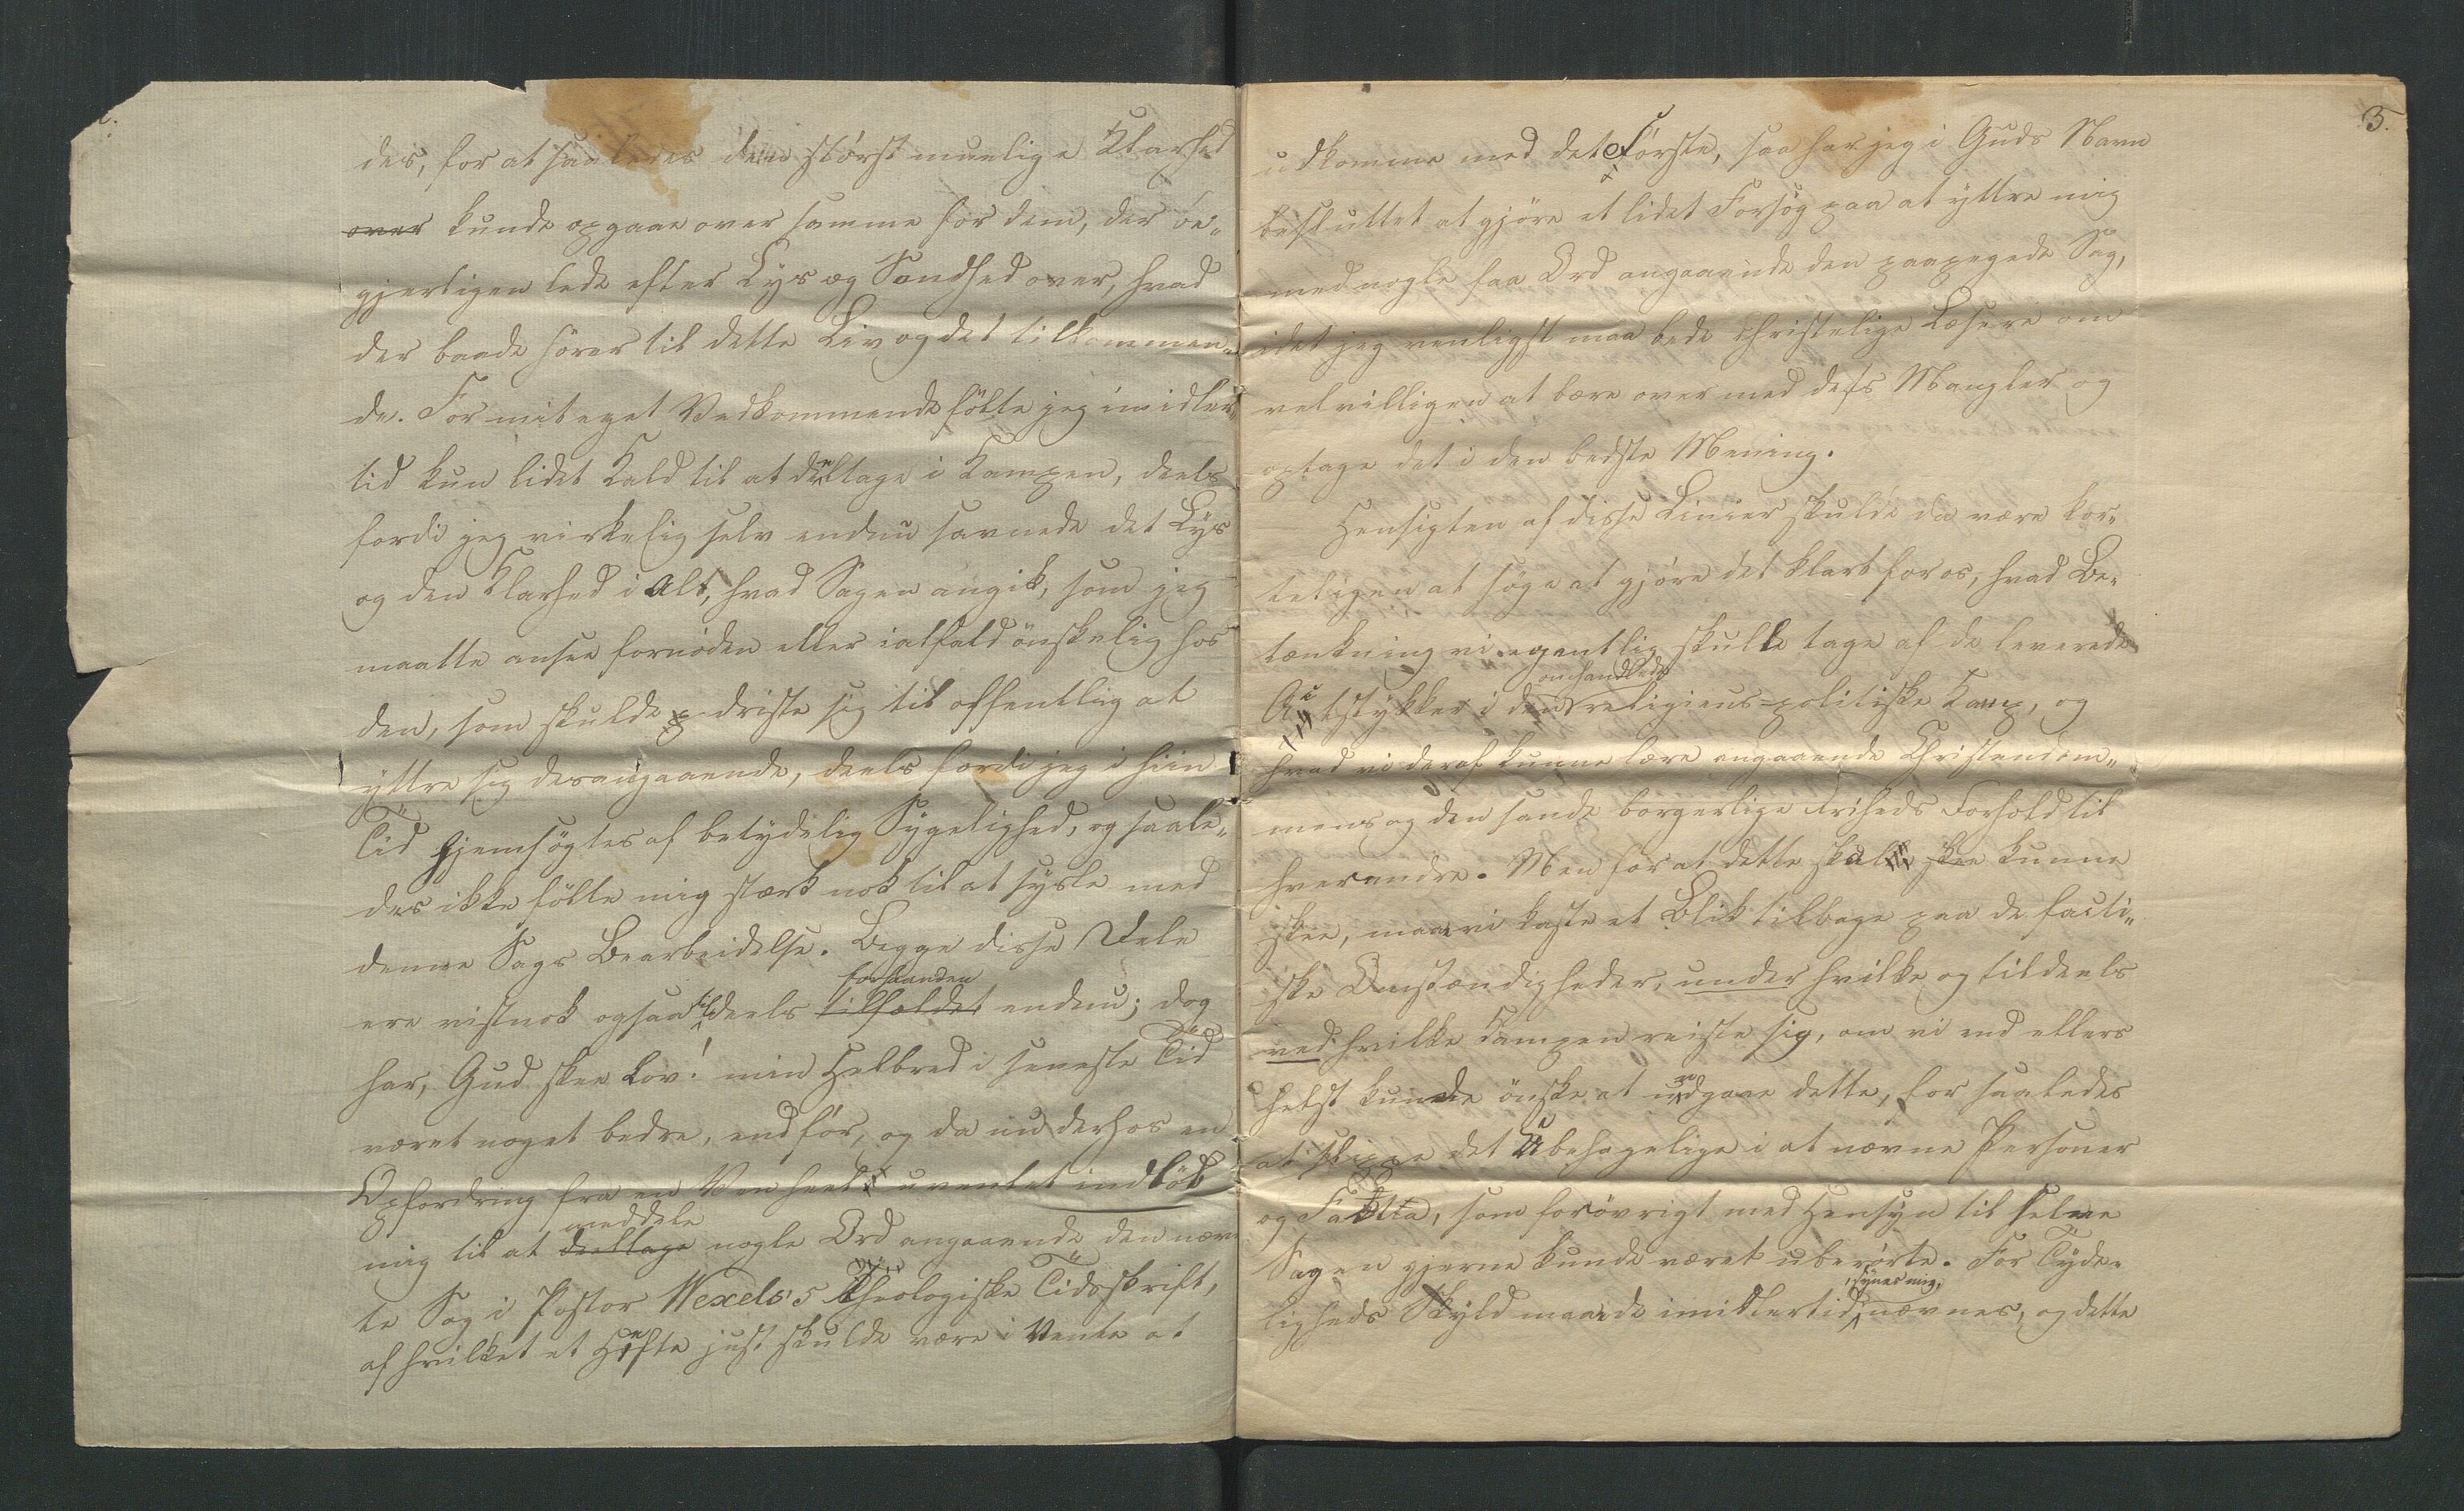 des, for at saaledes den störst muelige Klarhed
over kunde opgaae over samme for dem, der be-
gjerligen lede efter Lys og Sandhed over, hvad
der baade hörer til dette Liv og det tilkommen-
de. For mit eget Vedkommende fölte jeg imidler-
tid kun lidet Kald til at deeltage i Kampen, deels
fordi jeg virkelig selv endnu savnede det Lys
og den Klarhed i Alt, hvad Sagen angik, som jeg
maatte ansee fornöden eller ialfald önskelig hos
den, som skulde driste sig til offentlig at
yttre sig desangaaende, deels fordi jeg i hiin
Tid hjemsögtes af betydelig Sygelighed, og saale-
des ikke fölte mig stærk nok til at sysle med
denne Sags Bearbeidelse. Begge disse Dele
forhaanden
ere vistnok ogsaa tildeels tilfældet endnu; dog
har, Gud skee Lov! min Helbred i seneste Tid
været noget bedre, end för, og da nu derhos en
Opfordring fra en Ven heel uventet indlöb
meddele
mig til at deeltage nogle Ord angaaende den nævn
te Sag i Pastor Wexels's theologiske Tidsskrift,
af hvilket et Hefte just skulde være i Vente at
3.
udkomme med det Förste, saa har jeg i Guds Navn
besluttet at gjöre et lidet Forsög paa at yttre mig
med nogle faa Ord angaaende den paapegede Sag,
idet jeg venligst maa bede christelige Læsere om
velvilligen at bære over med dets Mangler og
optage det i den bedste Mening.
Hensigten af disse Linier skulde da være kor-
teligen at söge at gjöre det klart for os, hvad Be-
tænkning vi egentlig skulle tage af de leverede
omhandlede
Actstykker i den religieus-politiske Kamp, og
hvad vi deraf kunne lære angaaende Christendom-
mens og den sande borgerlige Friheds Forhold til
hverandre. Men for at dette skal skee kunne
skee, maae vi kaste et Blik tilbage paa de facti-
ske Omstændigheder, under hvilke og tildeels
ved hvilke Kampen reiste sig, om vi end ellers
helst kunde önske at undgaae dette, for saaledes
at slippe det Ubehagelige i at nævne Personer
og Facta, som forövrigt med Hensyn til selve
Sagen gjerne kunde været uberörte. For Tyde-
synes mig,
ligheds Skyld maae de imidlertid nævnes, og dette